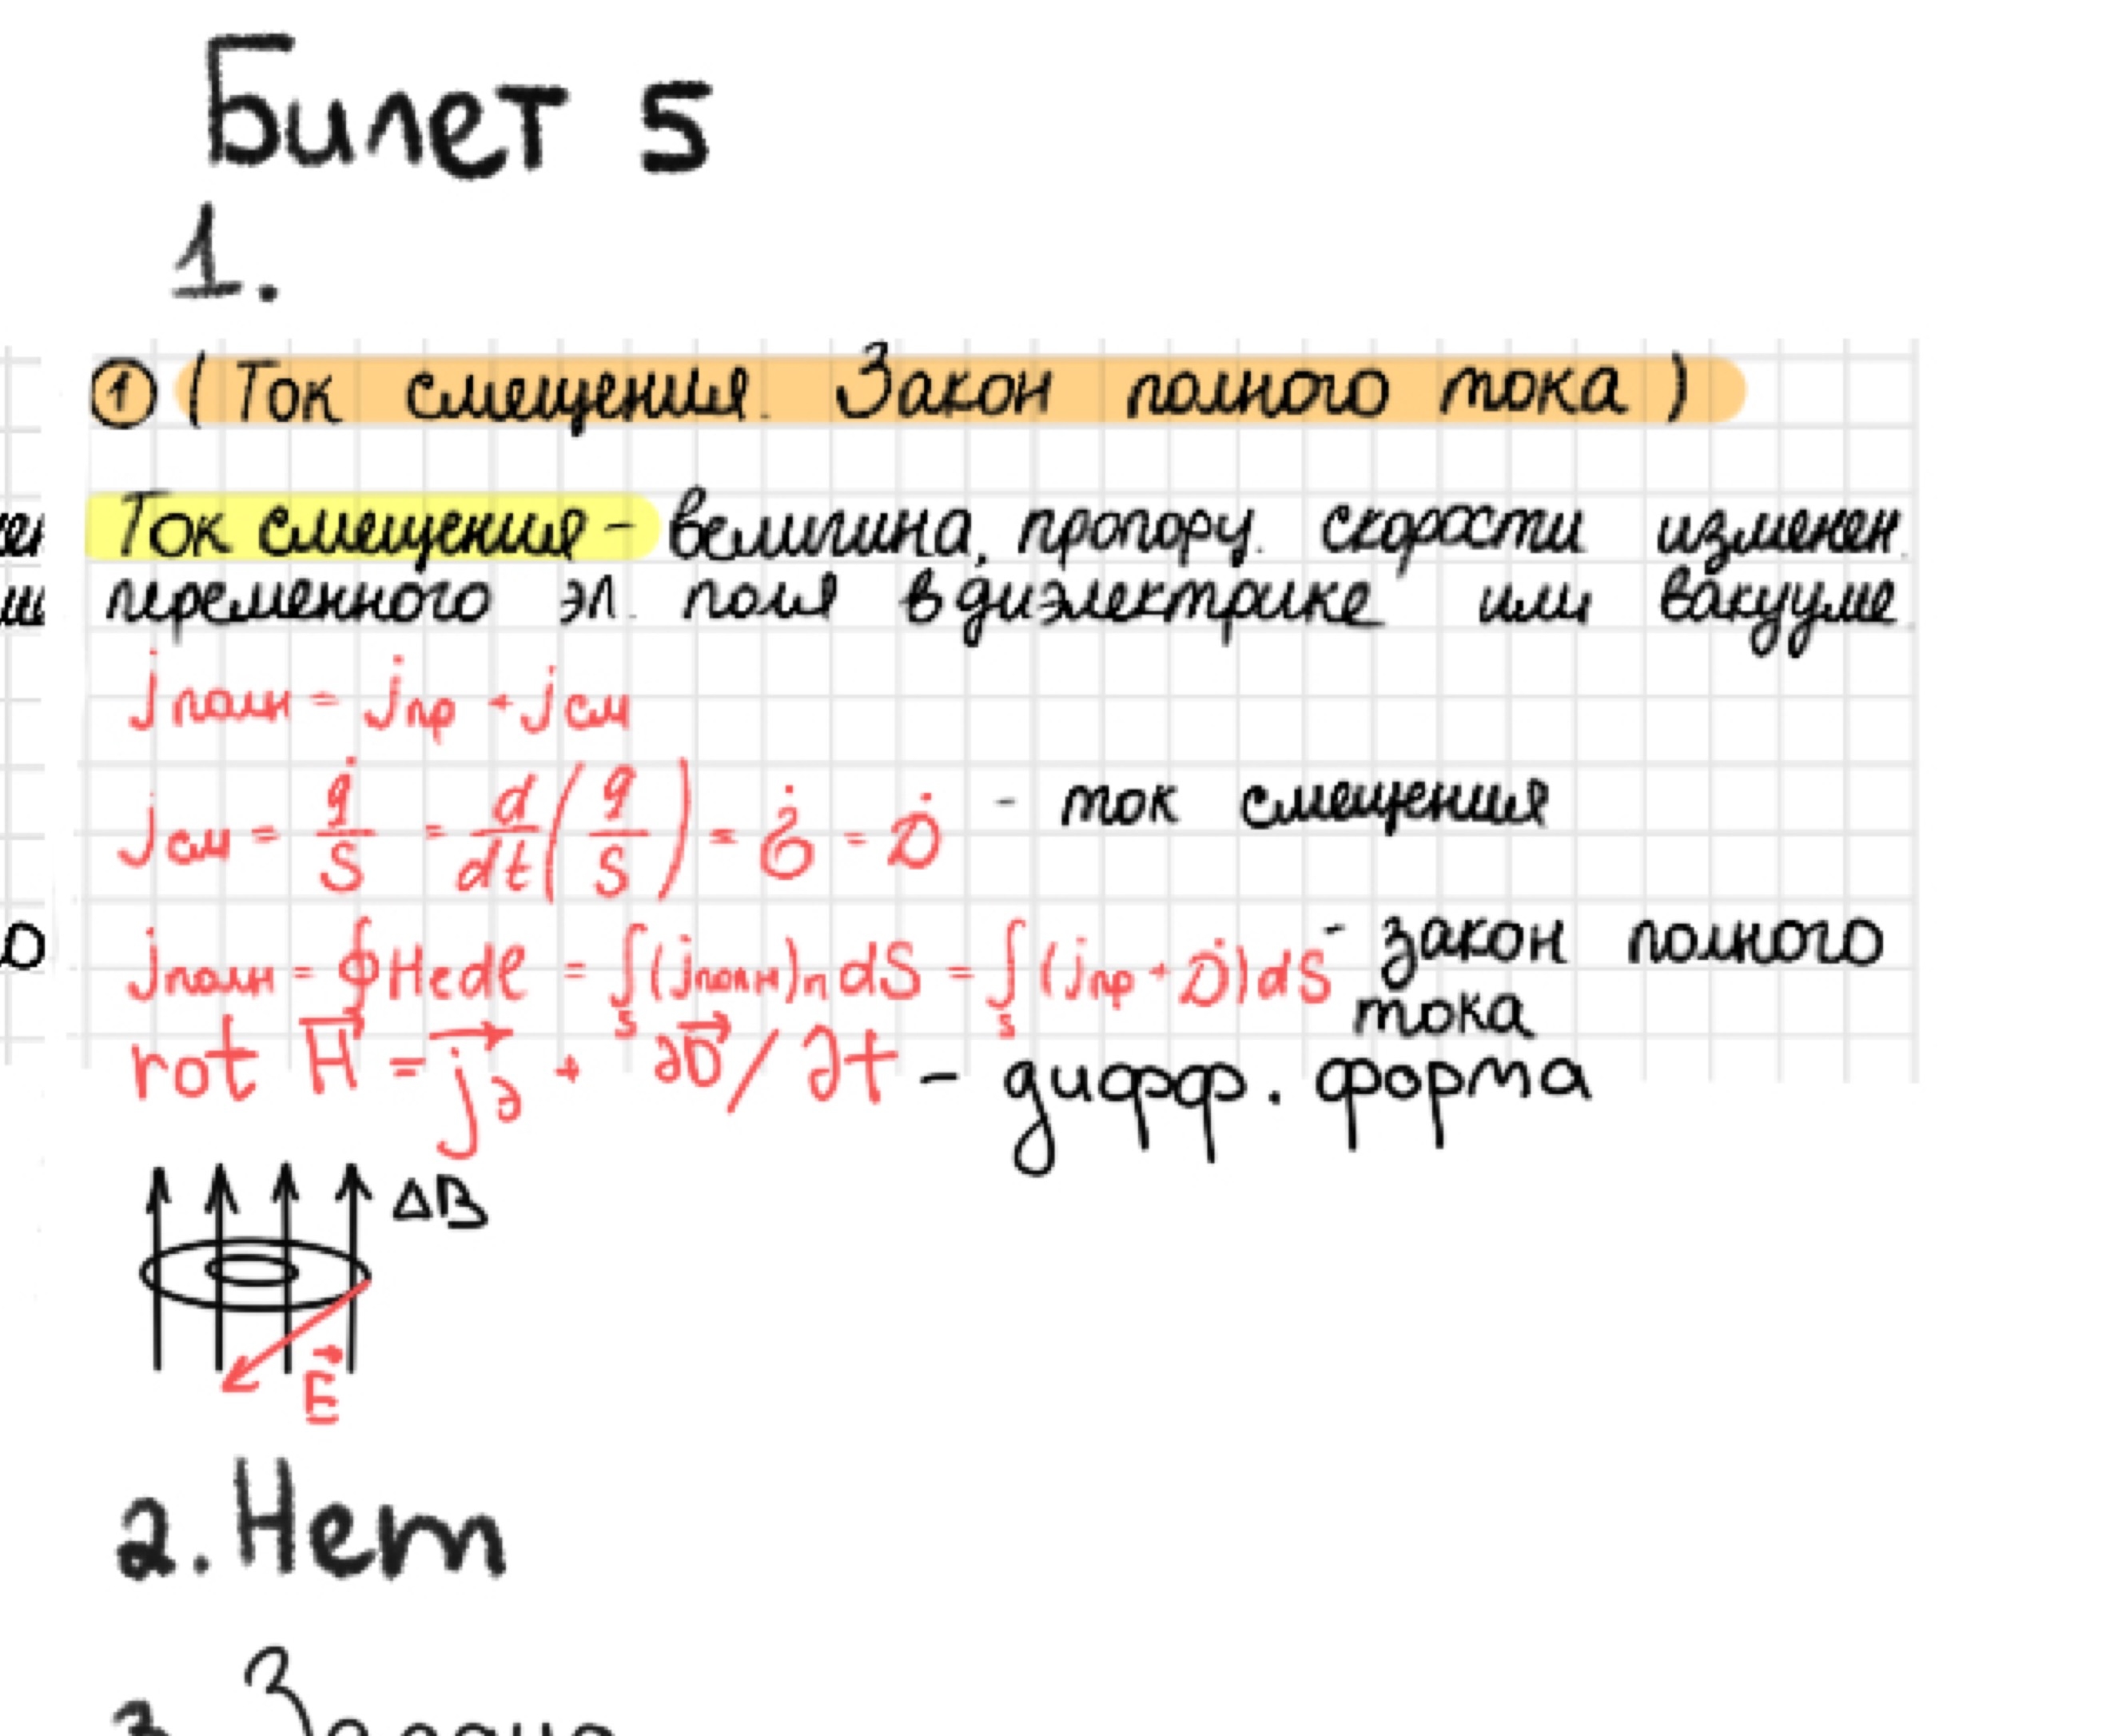 Билет 5
1.
① (Ток смещения. Закон полного тока)
Ток смещения - величина, пропорц. скорости изменен.
переменного эл. поля в диэлектрике или вакууме.
jполн = jпр + jсм
jсм = q̇/S = d/dt(q/S) = σ̇ = Ḋ - ток смещения
jполн = ∮Hedl = ∫S(jполн)n dS = ∫S(jпр + Ḋ)dS - закон полного
тока
rot H⃗ = j⃗∂ + ∂D⃗/∂t - дифф. форма
ΔB
E⃗
2. Нет